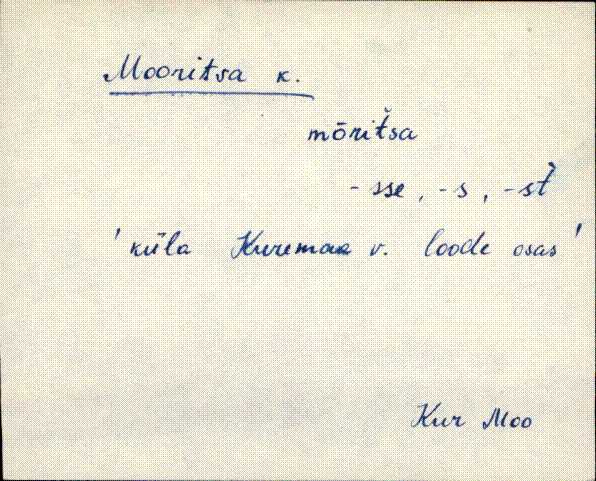 Mooritsa k.
mōriťsa
- sse, - s, - sť
'küla Kuremaa v. loode osas'
Kur Moo